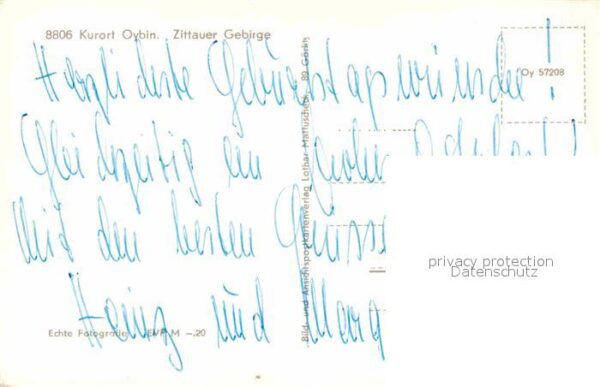 8806 Kurort Oybin. Zittauer Gebirge
Herzlichste Geburtstagswünsche !
Oy 57208
Gleichzeitig ein
Mit den besten Grüss
Heinz und Marg
Echte Fotografie EVP M –.20
Bild- und Ansichtspostkartenverlag Lothar Mattuscheck, 89 Görli
privacy protection
Datenschutz